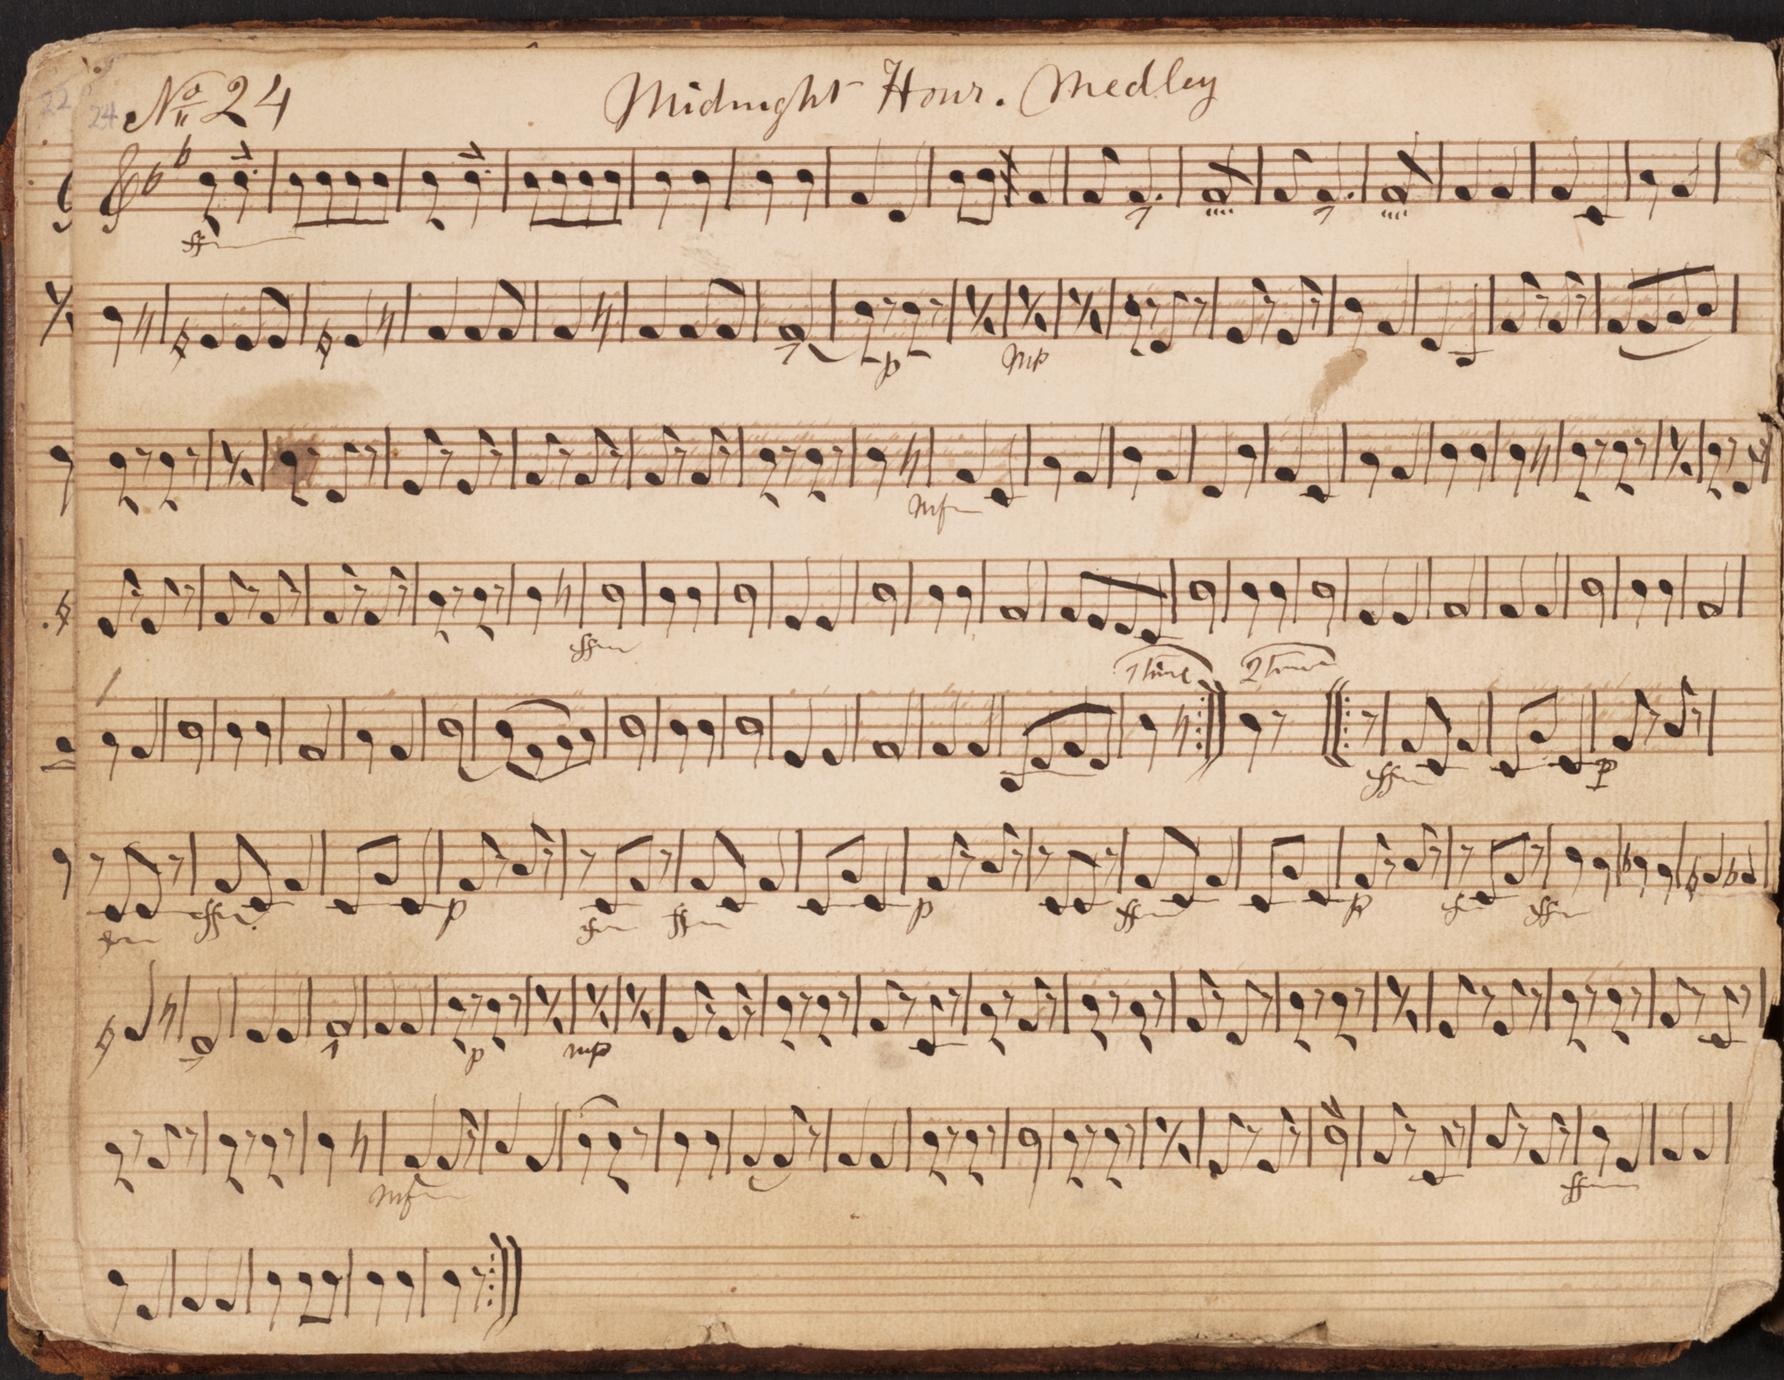 22 24 No 24 Midnight Hour. Medley
ff
p mp
mf
ff
1 time 2 time
ff p
ff p ff p ff p ff
p mp
mf ff